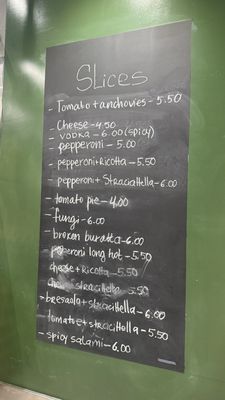 Slices
- Tomato + anchovies - 5.50
- Cheese - 4.50
- vodka - 6.00 (spicy)
- pepperoni - 5.00
- pepperoni + Ricotta - 5.50
- pepperoni + Straciattella - 6.00
- tomato pie - 4.00
- fungi - 6.00
- broken buratta - 6.00
pepperoni long hot - 5.50
cheese + Ricotta - 5.50
stracittella - 5.50
- bresaola + stracittella - 6.00
tomatoe + stracittella - 5.50
- spicy salami - 6.00